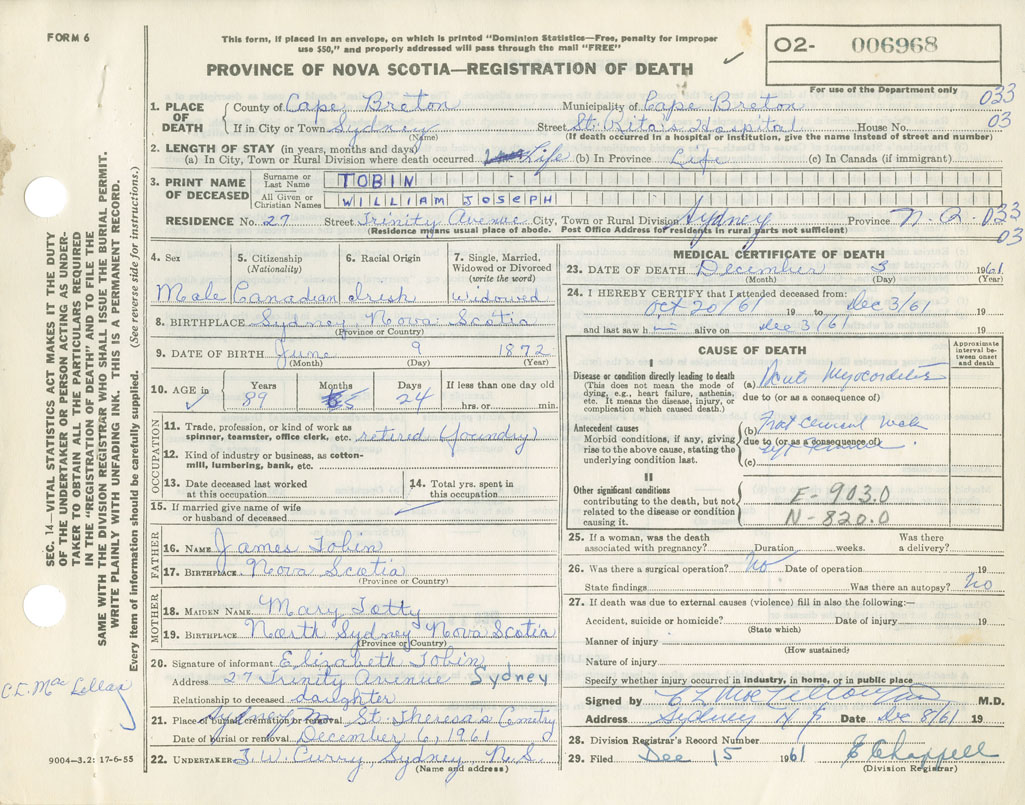 FORM 6
This form, if placed in an envelope, on which is printed "Dominion Statistics—Free, penalty for improper
use $50," and properly addressed will pass through the mail "FREE"
PROVINCE OF NOVA SCOTIA—REGISTRATION OF DEATH
02- 006968
For use of the Department only
033
03
1. PLACE OF DEATH
County of Cape Breton Municipality of Cape Breton
If in City or Town Sydney Street St. Rita's Hospital House No.
(Name) (If death occurred in a hospital or institution, give the name instead of street and number)
2. LENGTH OF STAY (in years, months and days)
(a) In City, Town or Rural Division where death occurred Life (b) In Province Life (c) In Canada (if immigrant)
3. PRINT NAME OF DECEASED
Surname or Last Name TOBIN
All Given or Christian Names WILLIAM JOSEPH
RESIDENCE No. 27 Street Trinity Avenue City, Town or Rural Division Sydney Province N.S. 033
03
(Residence means usual place of abode. Post Office Address for residents in rural parts not sufficient)
4. Sex 5. Citizenship (Nationality) 6. Racial Origin 7. Single, Married, Widowed or Divorced (write the word)
Male Canadian Irish Widowed
8. BIRTHPLACE Sydney Nova Scotia
(Province or Country)
9. DATE OF BIRTH June 9 1872
(Month) (Day) (Year)
10. AGE in Years Months Days If less than one day old
89 5 24 hrs. or min.
OCCUPATION
11. Trade, profession, or kind of work as
spinner, teamster, office clerk, etc. retired (foundry)
12. Kind of industry or business, as cotton-
mill, lumbering, bank, etc.
13. Date deceased last worked
at this occupation
14. Total yrs. spent in
this occupation
15. If married give name of wife
or husband of deceased
FATHER
16. NAME James Tobin
17. BIRTHPLACE Nova Scotia
(Province or Country)
MOTHER
18. MAIDEN NAME Mary Totty
19. BIRTHPLACE North Sydney Nova Scotia
(Province or Country)
20. Signature of informant Elizabeth Tobin
Address 27 Trinity Avenue Sydney
Relationship to deceased daughter
21. Place of burial cremation or removal St. Theresa's Cemetry
Date of burial or removal December 6, 1961
22. UNDERTAKER T.W. Curry, Sydney N.S.
(Name and address)
MEDICAL CERTIFICATE OF DEATH
23. DATE OF DEATH December 3 1961
(Month) (Day) (Year)
24. I HEREBY CERTIFY that I attended deceased from:
Oct 20/61 19 to Dec 3/61 19
and last saw him alive on Dec 3/61 19
CAUSE OF DEATH
Approximate interval between onset and death
I
Disease or condition directly leading to death
(This does not mean the mode of
dying, e.g., heart failure, asthenia,
etc. It means the disease, injury, or
complication which caused death.)
(a) Acute Myocarditis
due to (or as a consequence of)
Antecedent causes
Morbid conditions, if any, giving
rise to the above cause, stating the
underlying condition last.
(b) Fract cervical neck
due to (or as a consequence of)
left
(c)
II
Other significant conditions
contributing to the death, but not
related to the disease or condition
causing it.
E-903.0
N-820.0
25. If a woman, was the death Was there
associated with pregnancy? Duration weeks. a delivery?
26. Was there a surgical operation? No Date of operation 19
State findings Was there an autopsy? No
27. If death was due to external causes (violence) fill in also the following:—
Accident, suicide or homicide? Date of injury 19
(State which)
Manner of injury
(How sustained)
Nature of injury
Specify whether injury occurred in industry, in home, or in public place
Signed by C L MacLellan M.D.
Address Sydney N S Date Dec 8/61 19
28. Division Registrar's Record Number
29. Filed Dec 15 1961 E Chappell
(Division Registrar)
SEC. 14—VITAL STATISTICS ACT MAKES IT THE DUTY
OF THE UNDERTAKER OR PERSON ACTING AS UNDER-
TAKER TO OBTAIN ALL THE PARTICULARS REQUIRED
IN THE "REGISTRATION OF DEATH" AND TO FILE THE
SAME WITH THE DIVISION REGISTRAR WHO SHALL ISSUE THE BURIAL PERMIT.
WRITE PLAINLY WITH UNFADING INK. THIS IS A PERMANENT RECORD.
Every item of information should be carefully supplied. (See reverse side for instructions.)
C.L. MacLellan
9004—3.2: 17-6-55